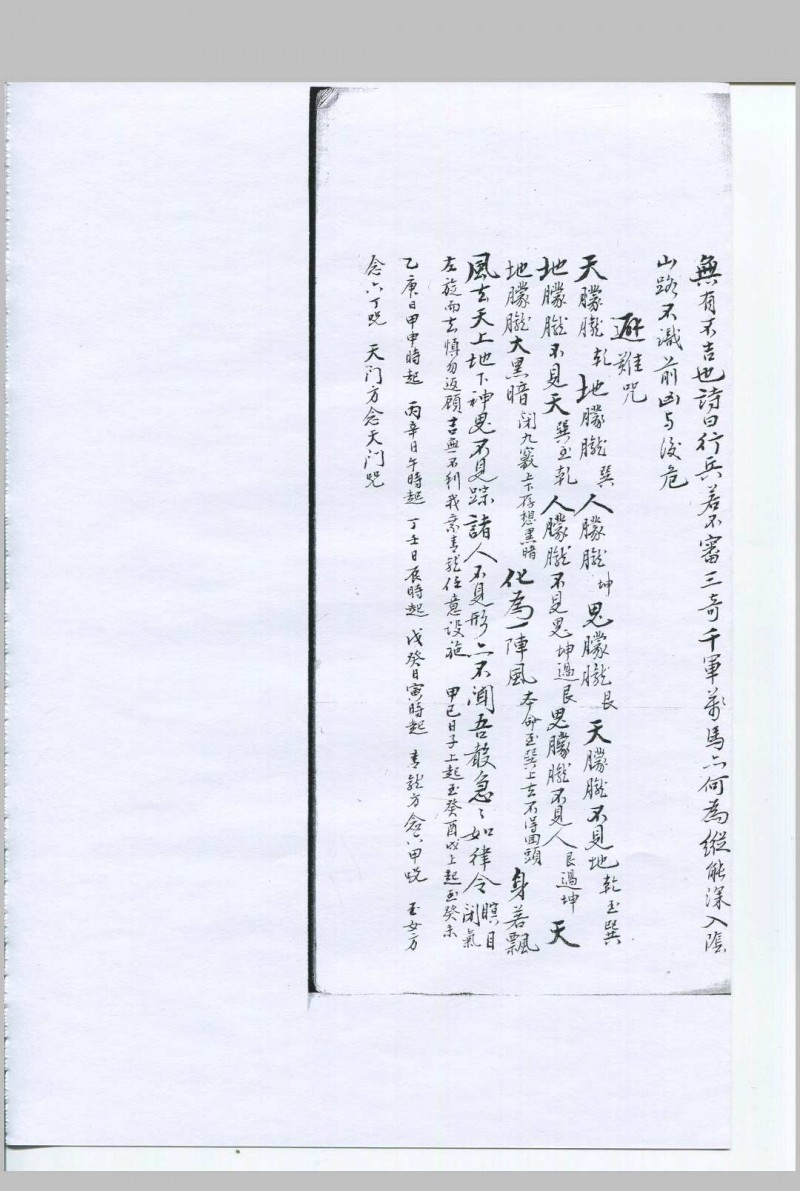 無有不吉也詩曰行兵若不審三奇千軍萬馬亦何為縱能深入陰
山路不識前凶与後危
避難咒
天朦朧乾地朦朧巽人朦朧坤鬼朦朧艮天朦朧不見地乾至巽
地朦朧不見天巽至乾人朦朧不見鬼坤過艮鬼朦朧不見人艮過坤天
地朦朧大黑暗閉九竅上下存想黑暗化為一陣風本命至巽上去不得回頭身若飄
風去天上地下神鬼不見踪諸人不見形亦不聞吾聲急〻如律令閉氣瞑目
左旋而去慎勿返顧吉無不利我乘青龍任意設施甲己日子上起至癸酉戌上起至癸未
乙庚日甲申時起丙辛日午時起丁壬日辰時起戊癸日寅時起青龍方念六甲咒玉女方
念六丁咒天门方念天门咒